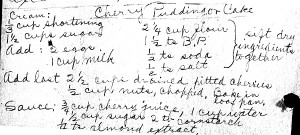 Cream: Cherry Pudding or Cake
3/4 cup shortening 2 1/4 cup flour sift dry
1 1/2 cups sugar 1 1/2 ts B.P. ingredients
Add: 2 eggs. 1/2 ts soda together
1 cup milk 1/2 ts salt
Add last 2 1/2 cups drained pitted cherries
1/2 cup nuts, chopped. Bake in
loaf pan.
Sauce: 3/4 cup cherry juice, 1 cup water
1/2 cup sugar 2 tb cornstarch
1/2 ts almond extract.